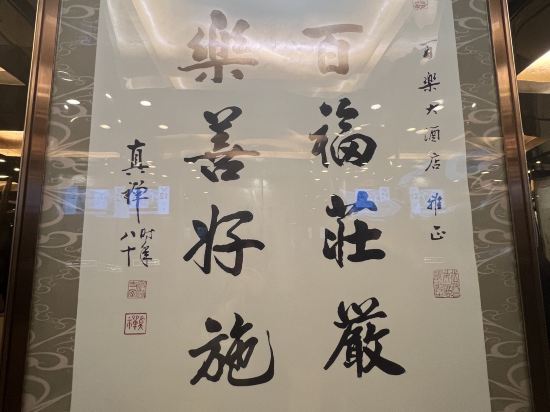 百樂大酒店 雅正
百福莊嚴
樂善好施
真禪
时年八十